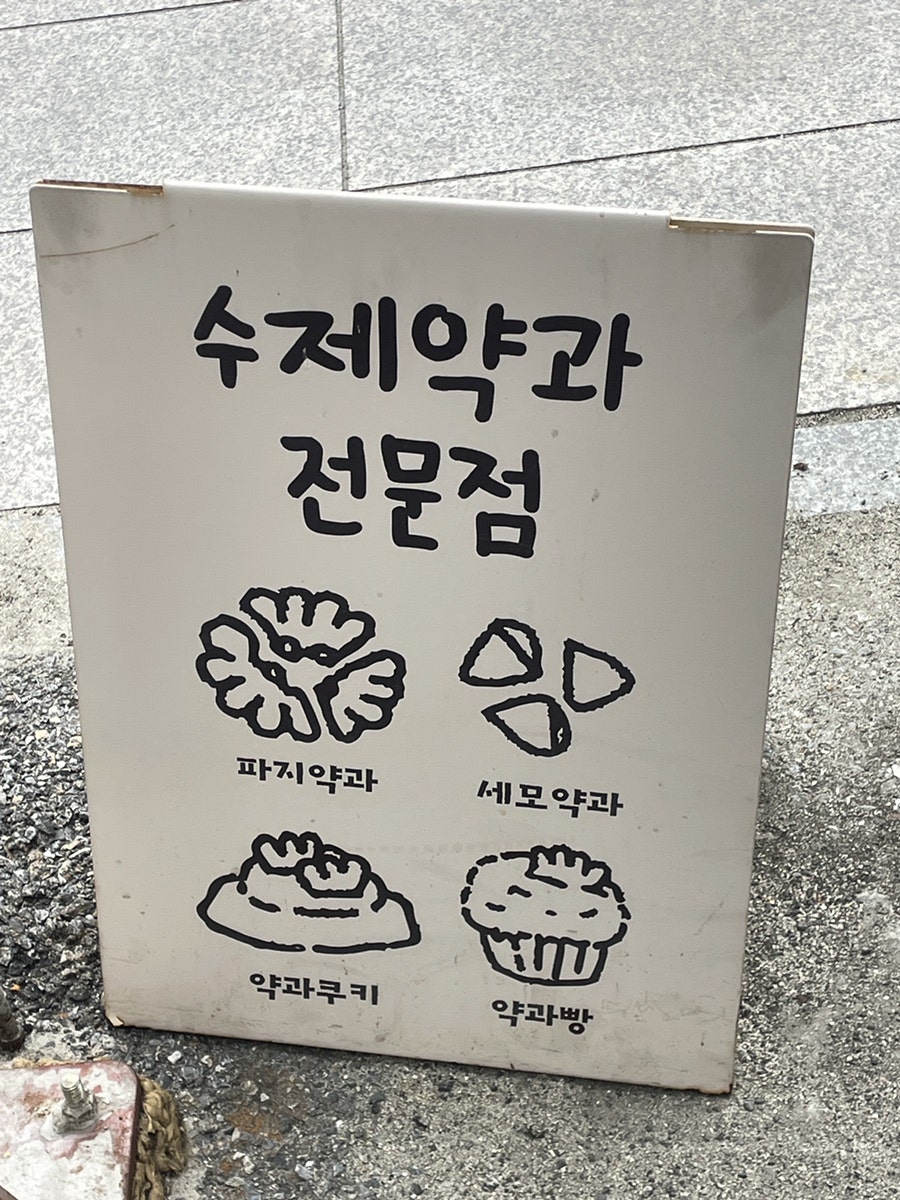 수제약과
전문점
파지약과
세모약과
약과쿠키
약과빵